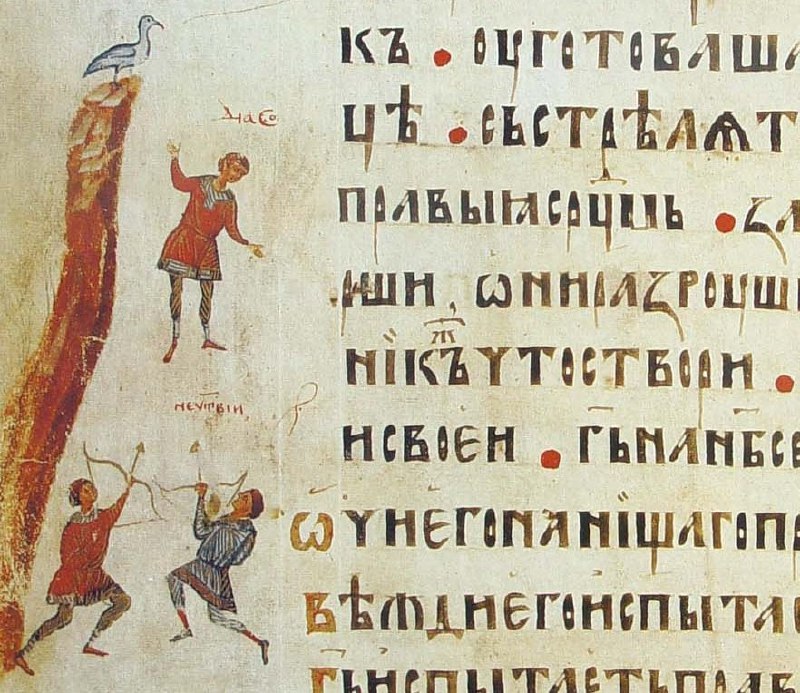 дао
нечⷭтвии
къ • оуготоваша
цѣ • състрѣлѧт
правыꙗсрцмь • за
рши, ѡниразроуши
нїкъⷤчтоствори •
исвоеи • г҃ьнан҃бсе
ѡчиегонанїщагопр
вѣждиегоиспыта
г҃ьиспытаетьправ